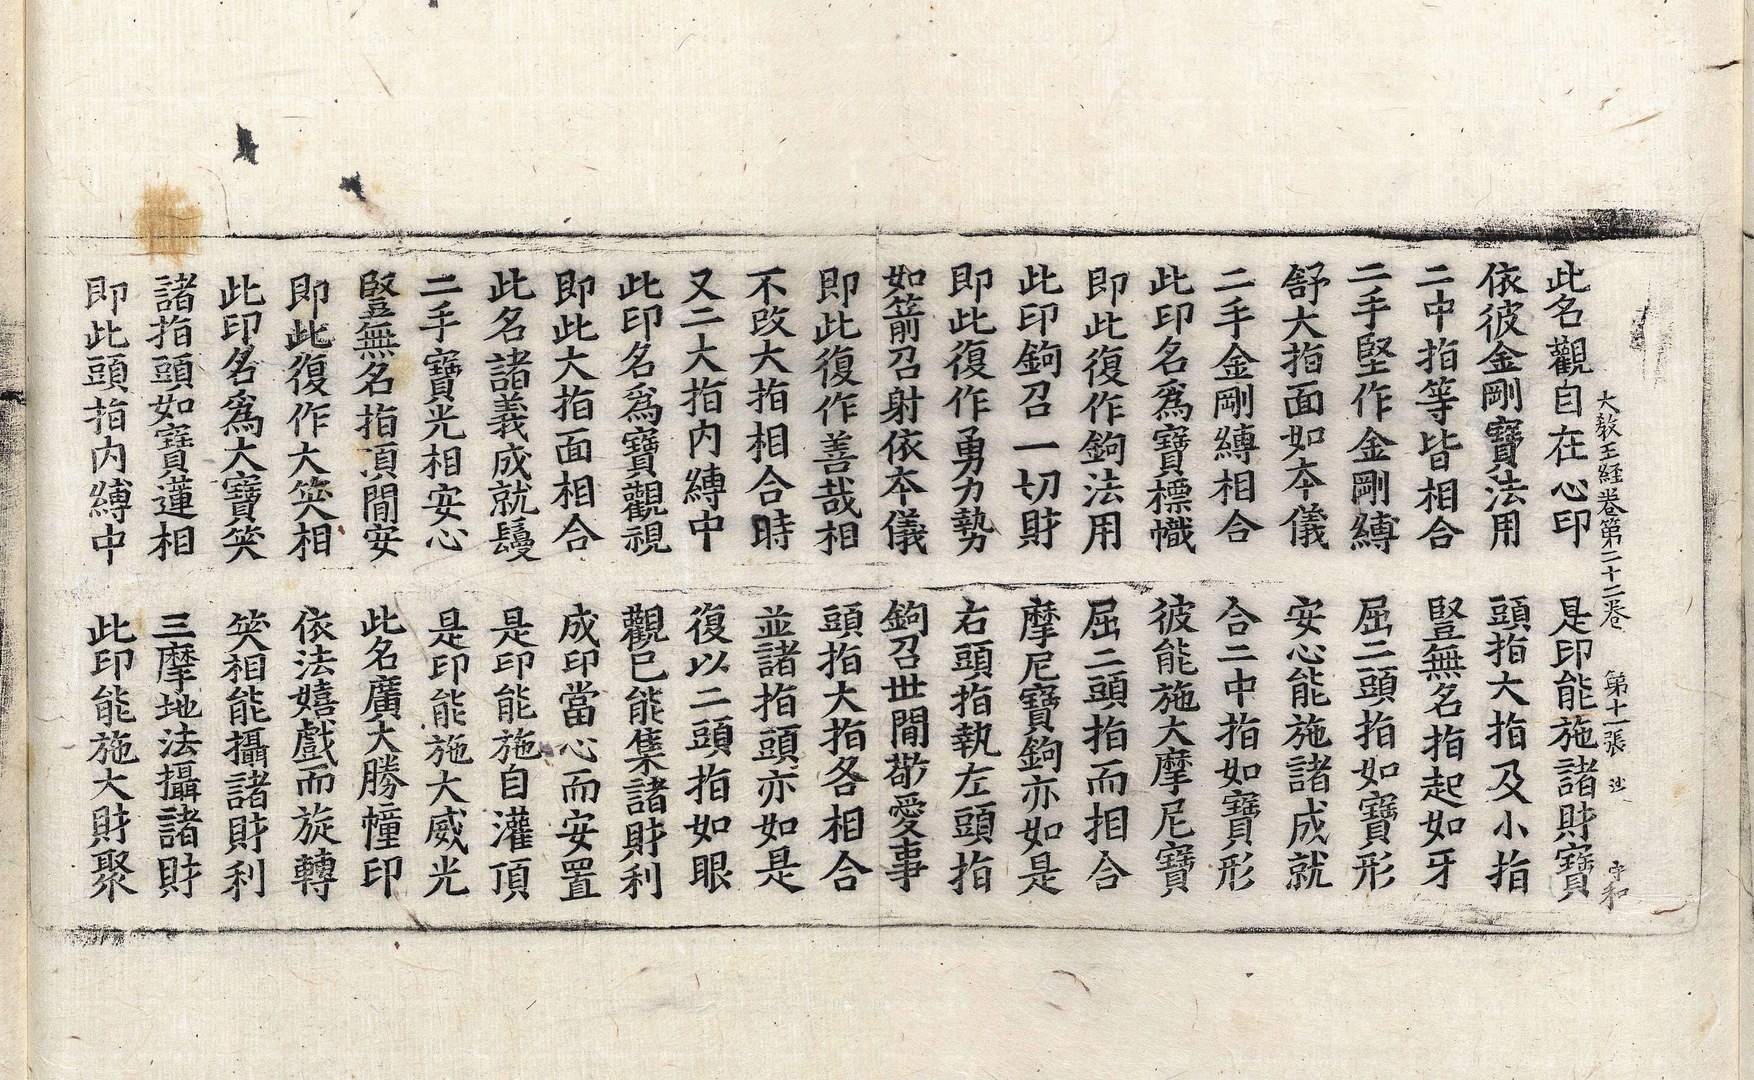 大教王経卷第二十二卷　第十一張　沙　守和
此名觀自在心印　是印能施諸財寶
依彼金剛寶法用　頭指大指及小指
二中指等皆相合　豎無名指起如牙
二手堅作金剛縛　屈二頭指如寶形
舒大指面如本儀　安心能施諸成就
二手金剛縛相合　合二中指如寶形
此印名爲寶標幟　彼能施大摩尼寶
即此復作鉤法用　屈二頭指而相合
此印鉤召一切財　摩尼寶鉤亦如是
即此復作勇力勢　右頭指執左頭指
如箭召射依本儀　鉤召世間敬愛事
即此復作善哉相　頭指大指各相合
不改大指相合時　並諸指頭亦如是
又二大指内縛中　復以二頭指如眼
此印名爲寶觀視　觀已能集諸財利
即此大指面相合　成印當心而安置
此名諸義成就鬘　是印能施自灌頂
二手寶光相安心　是印能施大威光
豎無名指頂間安　此名廣大勝幢印
即此復作大笑相　依法嬉戲而旋轉
此印名爲大寶笑　笑相能攝諸財利
諸指頭如寶蓮相　三摩地法攝諸財
即此頭指内縛中　此印能施大財聚